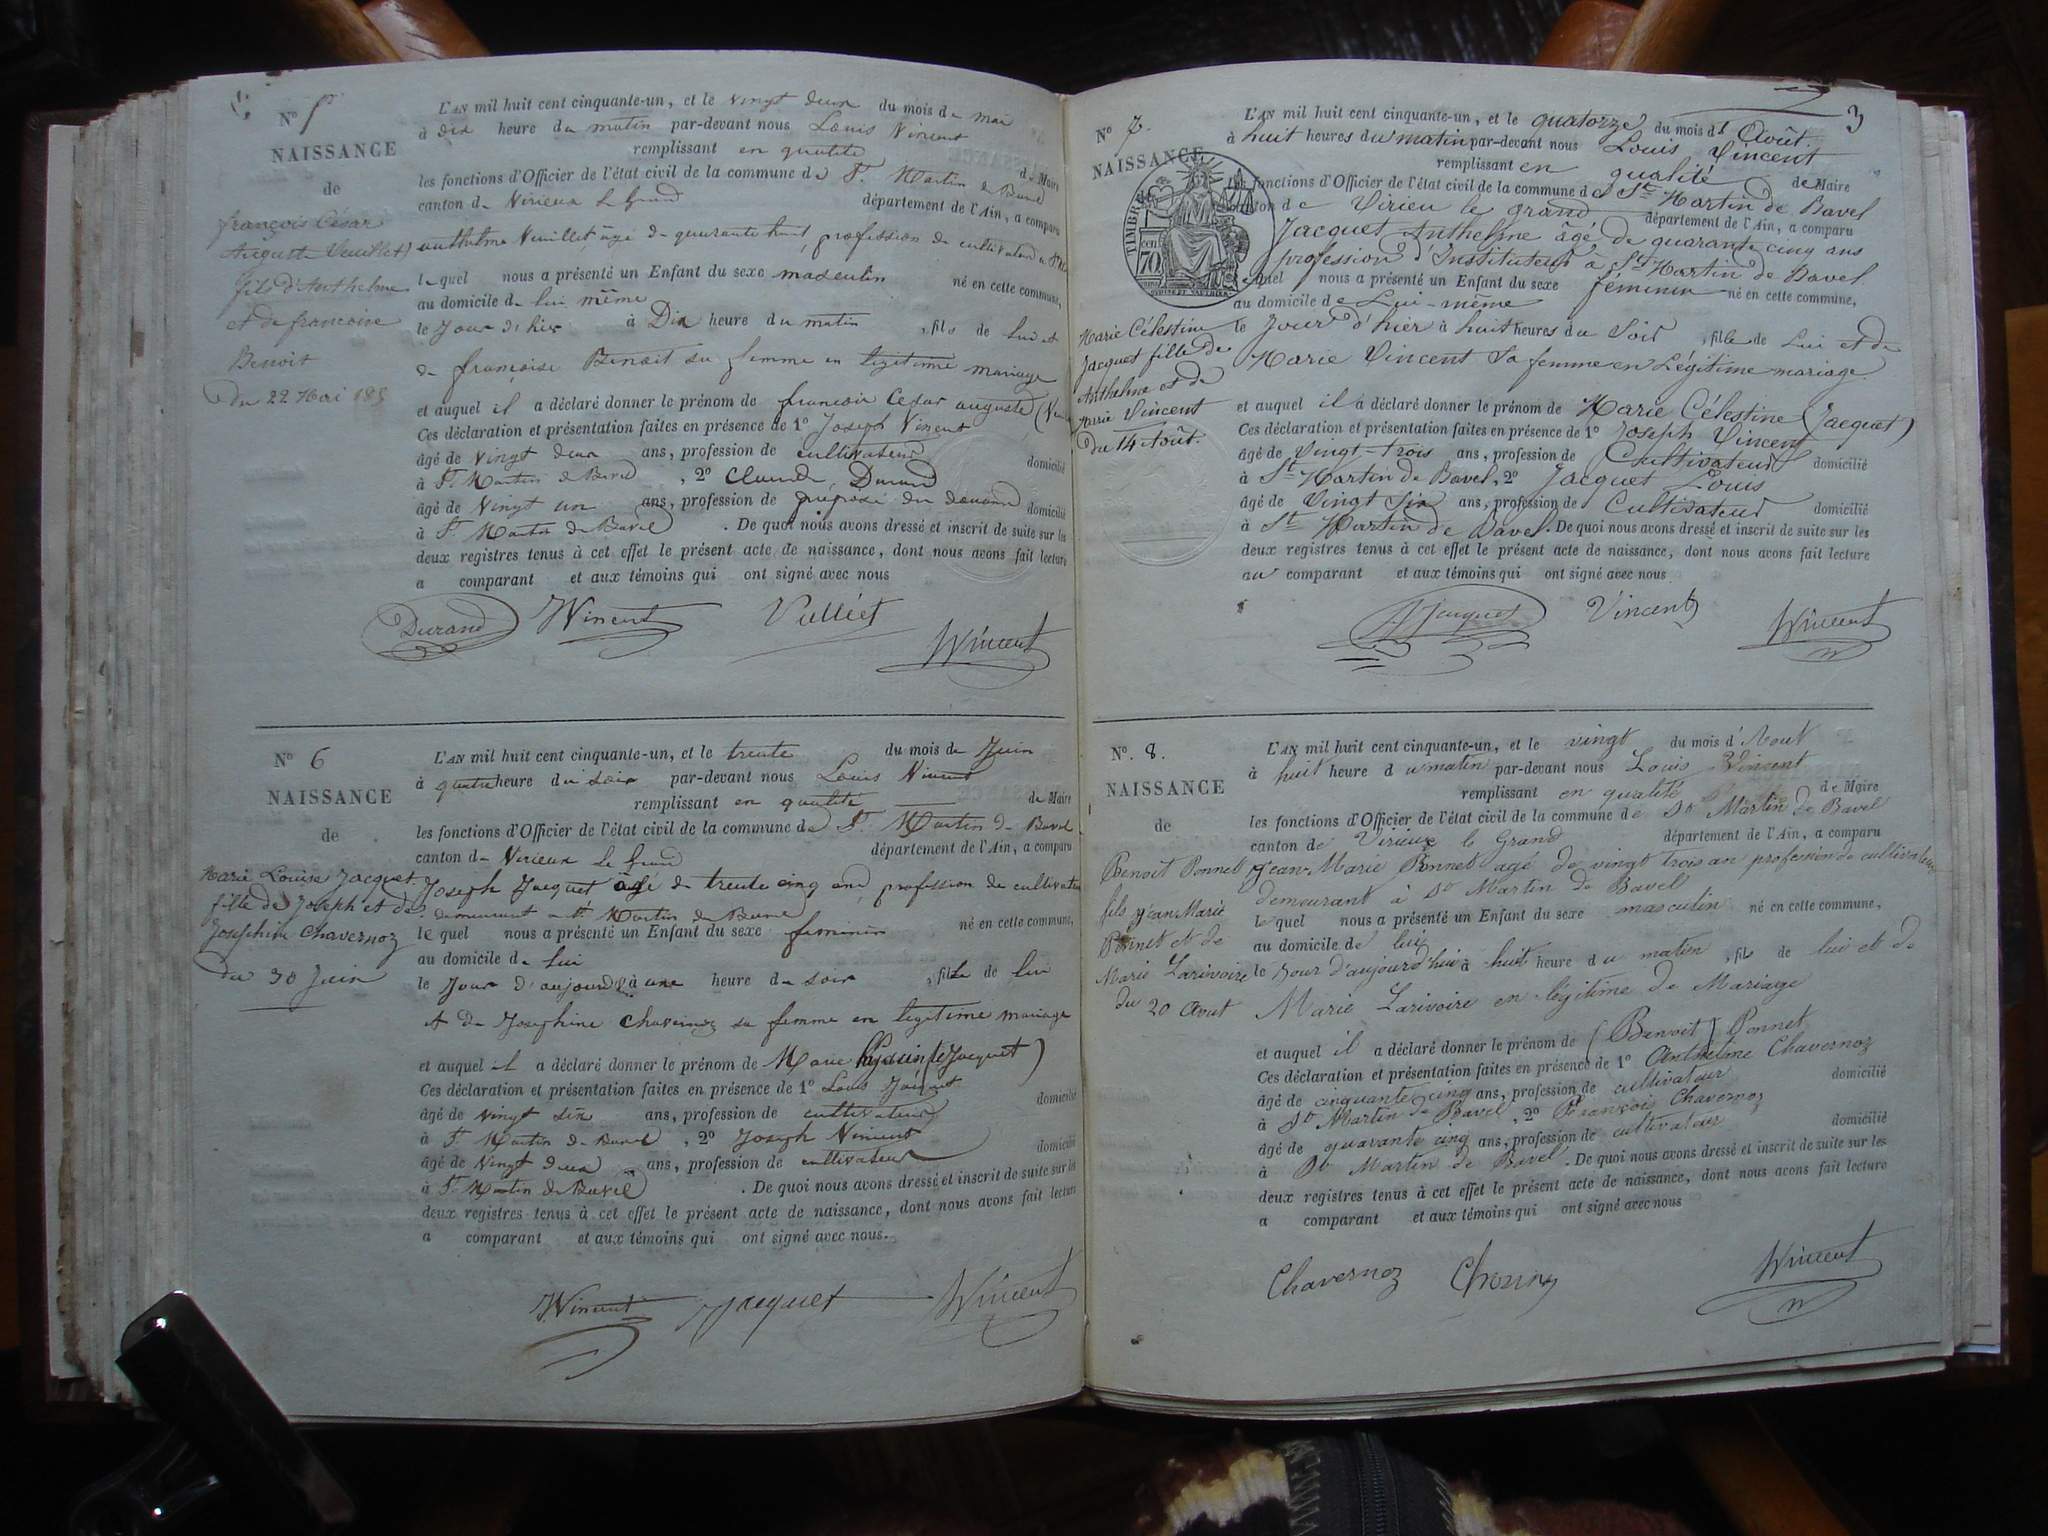 N° 5
NAISSANCE
de
françois César
Auguste Vuillet
fils d'Anthelme
et de francoise
Benoit
du 22 Mai 185
L'AN mil huit cent cinquante-un, et le vingt deux du mois de mai
à dix heure du matin par-devant nous Louis Vincent
remplissant en qualité de Maire
les fonctions d'Officier de l'état civil de la commune de St. Martin de Bavel
canton de Virieux Le Grand département de l'Ain, a comparu
anthelme Vuillet âgé de quarante huit, profession de cultivateur a St M
le quel nous a présenté un Enfant du sexe masculin né en cette commune,
au domicile de lui même
le Jour d'hier à Dix heure du matin , fils de lui et
de françoise Benoit sa femme en legitime mariage
et auquel il a déclaré donner le prénom de francois Cesar auguste (Vui
Ces déclaration et présentation faites en présence de 1° Joseph Vincent
âgé de vingt deux ans, profession de cultivateur domicilié
à St. Martin de Bavel , 2° Claude Durand
âgé de vingt un ans, profession de préposé des douane domicilié
à St. Martin de Bavel . De quoi nous avons dressé et inscrit de suite sur les
deux registres tenus à cet effet le présent acte de naissance, dont nous avons fait lecture
a comparant et aux témoins qui ont signé avec nous
Durand JVincent Vulliet Vincent
N° 6
NAISSANCE
de
Marie Louise Jacquet
fille de Joseph et de
Josephine Chavernoz
du 30 Juin
L'AN mil huit cent cinquante-un, et le trente du mois de Juin
à quatre heure du soir par-devant nous Louis Vincent
remplissant en qualité de Maire
les fonctions d'Officier de l'état civil de la commune de St. Martin de Bavel
canton de Virieux Le Grand département de l'Ain, a comparu
Joseph Jacquet âgé de trente cinq ans, profession de cultivateur
demeurant a St. Martin de Bavel
le quel nous a présenté un Enfant du sexe feminin né en cette commune,
au domicile de lui
le Jour d'aujourd'hui à une heure du soir , fille de lui
et de Josephine Chavernoz sa femme en legitime mariage
et auquel il a déclaré donner le prénom de Marie (Jacquet)
Ces déclaration et présentation faites en présence de 1° Louis Jacquet
âgé de vingt six ans, profession de cultivateur domicilié
à St. Martin de Bavel , 2° Joseph Vincent
âgé de vingt deux ans, profession de cultivateur domicilié
à St. Martin de Bavel . De quoi nous avons dressé et inscrit de suite sur les
deux registres tenus à cet effet le présent acte de naissance, dont nous avons fait lecture
a comparant et aux témoins qui ont signé avec nous.
JVincent Jacquet Vincent
3
N° 7.
NAISSANCE
TIMBRE
70 cen
Marie Célestine
Jacquet fille de
Anthelme et de
Marie Vincent
du 14 Août.
L'AN mil huit cent cinquante-un, et le quatorze du mois d' Août.
à huit heures du matin par-devant nous Louis Vincent
remplissant en qualité de Maire
les fonctions d'Officier de l'état civil de la commune de St. Martin de Bavel
canton de Virieu le grand département de l'Ain, a comparu
Jacquet Anthelme âgé de quarante cinq ans
profession d'Instituteur à St. Martin de Bavel
lequel nous a présenté un Enfant du sexe féminin né en cette commune,
au domicile de Lui-même
le Jour d'hier à huit heures du Soir , fille de Lui et de
Marie Vincent Sa femme en Légitime mariage.
et auquel il a déclaré donner le prénom de Marie Célestine (Jacquet)
Ces déclaration et présentation faites en présence de 1° Joseph Vincent
âgé de Vingt-trois ans, profession de Cultivateur domicilié
à St. Martin de Bavel, 2° Jacquet Louis
âgé de Vingt Six ans, profession de Cultivateur domicilié
à St. Martin de Bavel. De quoi nous avons dressé et inscrit de suite sur les
deux registres tenus à cet effet le présent acte de naissance, dont nous avons fait lecture
au comparant et aux témoins qui ont signé avec nous
AJacquet Vincent Vincent
N°. 8.
NAISSANCE
de
Benoit Ponnet
fils jean Marie
Ponnet et de
Marie Larivoire
du 20 Aout
L'AN mil huit cent cinquante-un, et le vingt du mois d'Aout
à huit heure du matin par-devant nous Louis Vincent
remplissant en qualité de Maire
les fonctions d'Officier de l'état civil de la commune de St Martin de Bavel
canton de Virieux le Grand département de l'Ain, a comparu
jean Marie Ponnet agé de vingt trois an profession de cultivateur
demeurant à St Martin de Bavel
le quel nous a présenté un Enfant du sexe masculin né en cette commune,
au domicile de lui
le jour d'aujourd'hui à huit heure du matin , fils de lui et de
Marie Larivoire en légitime de Mariage
et auquel il a déclaré donner le prénom de (Benoit) Ponnet
Ces déclaration et présentation faites en présence de 1° Anthelme Chavernoz
âgé de cinquante cinq ans, profession de cultivateur domicilié
à St Martin de Bavel , 2° François Chavernoz
âgé de quarante cinq ans, profession de cultivateur domicilié
à St Martin de Bavel . De quoi nous avons dressé et inscrit de suite sur les
deux registres tenus à cet effet le présent acte de naissance, dont nous avons fait lecture
a comparant et aux témoins qui ont signé avec nous
Chavernoz Vincent